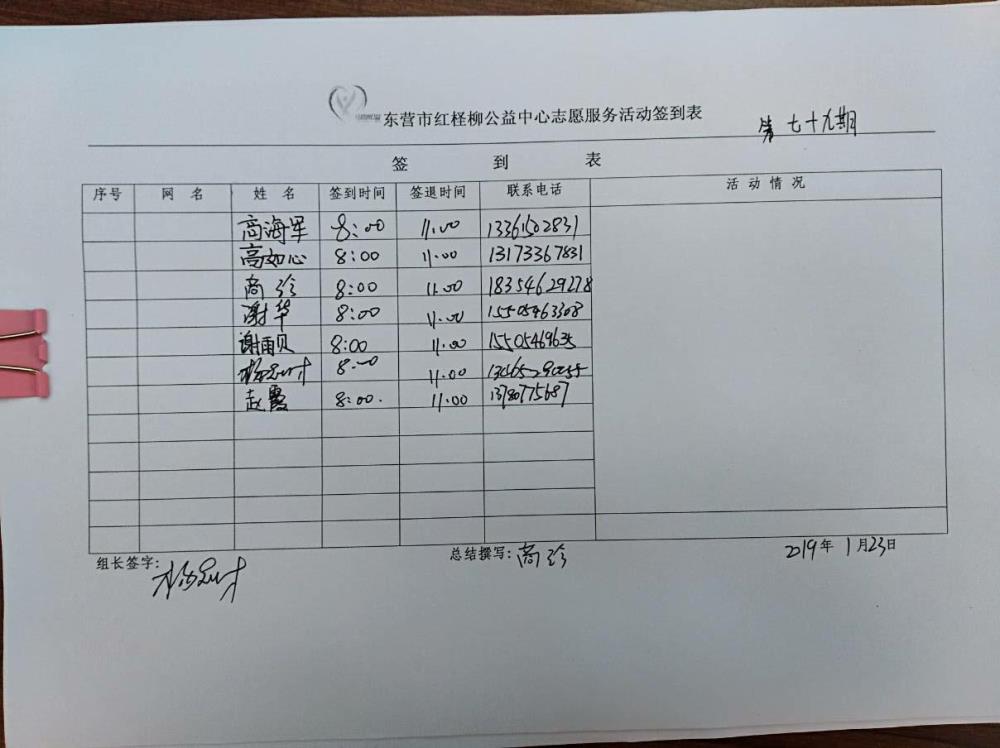 东营市红柽柳公益中心志愿服务活动签到表
第七十九期
签 到 表
序号 网 名 姓 名 签到时间 签退时间 联系电话 活 动 情 况
商海军 8:00 11.00 13361502831
高如心 8:00 11.00 13173367831
商珍 8:00 11.00 18354629278
谢华 8:00 11.00 15505463308
谢雨贝 8:00 11.00 15505469635
8:00 11.00
赵霞 8:00. 11.00 13780775687
组长签字: 总结撰写: 商珍 2019年 1月23日